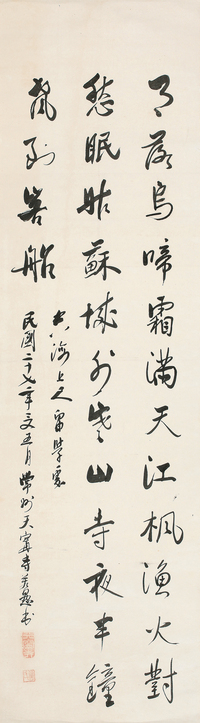 月落烏啼霜滿天江楓漁火對
愁眠姑蘇城外寒山寺夜半鐘
聲到客船
上人留學
民國二十七年五月常州天寧寺書